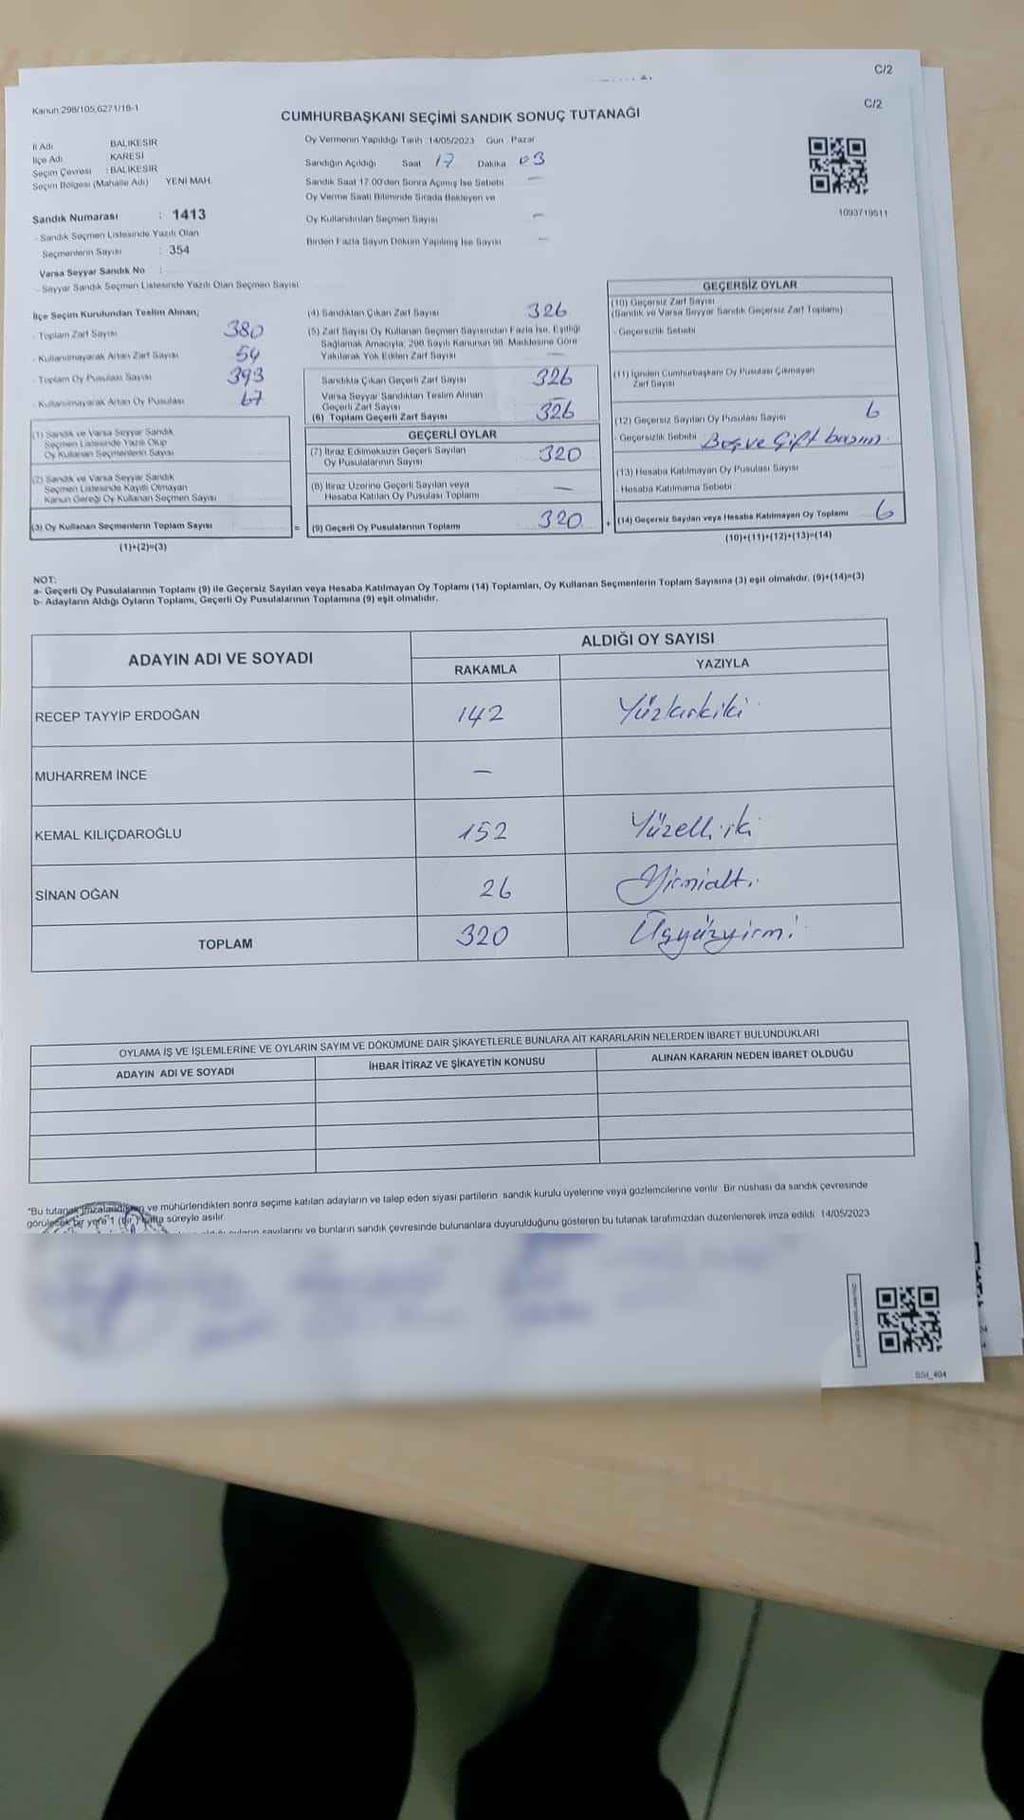 C/2
C/2
Kanun 298/105,6271/18-1
CUMHURBAŞKANI SEÇİMİ SANDIK SONUÇ TUTANAĞI
İl Adı BALIKESİR
İlçe Adı KARESİ
Seçim Çevresi : BALIKESİR
Seçim Bölgesi (Mahalle Adı) YENİ MAH.
Sandık Numarası : 1413
- Sandık Seçmen Listesinde Yazılı Olan
Seçmenlerin Sayısı : 354
Varsa Seyyar Sandık No :
- Seyyar Sandık Seçmen Listesinde Yazılı Olan Seçmen Sayısı
Oy Vermenin Yapıldığı Tarih 14/05/2023 Gün Pazar
Sandığın Açıldığı Saat 17 Dakika 03
Sandık Saat 17.00'den Sonra Açılmış İse Sebebi —
Oy Verme Saati Bitiminde Sırada Bekleyen ve
Oy Kullandırılan Seçmen Sayısı —
Birden Fazla Sayım Döküm Yapılmış İse Sayısı —
1093719511
İlçe Seçim Kurulundan Teslim Alınan;
- Toplam Zarf Sayısı 380
- Kullanılmayarak Artan Zarf Sayısı 54
- Toplam Oy Pusulası Sayısı 393
- Kullanılmayarak Artan Oy Pusulası 67
(1) Sandık ve Varsa Seyyar Sandık
Seçmen Listesinde Yazılı Olup
Oy Kullanan Seçmenlerin Sayısı
(2) Sandık ve Varsa Seyyar Sandık
Seçmen Listesinde Kayıtlı Olmayan
Kanun Gereği Oy Kullanan Seçmen Sayısı
(3) Oy Kullanan Seçmenlerin Toplam Sayısı =
(1)+(2)=(3)
(4) Sandıktan Çıkan Zarf Sayısı 326
(5) Zarf Sayısı Oy Kullanan Seçmen Sayısından Fazla İse, Eşitliği
Sağlamak Amacıyla, 298 Sayılı Kanunun 98. Maddesine Göre
Yakılarak Yok Edilen Zarf Sayısı —
Sandıkta Çıkan Geçerli Zarf Sayısı 326
Varsa Seyyar Sandıktan Teslim Alınan
Geçerli Zarf Sayısı —
(6) Toplam Geçerli Zarf Sayısı 326
GEÇERLİ OYLAR
(7) İtiraz Edilmeksizin Geçerli Sayılan
Oy Pusulalarının Sayısı 320
(8) İtiraz Üzerine Geçerli Sayılan veya
Hesaba Katılan Oy Pusulası Toplamı —
(9) Geçerli Oy Pusulalarının Toplamı 320 +
GEÇERSİZ OYLAR
(10) Geçersiz Zarf Sayısı
(Sandık ve Varsa Seyyar Sandık Geçersiz Zarf Toplamı)
- Geçersizlik Sebebi
(11) İçinden Cumhurbaşkanı Oy Pusulası Çıkmayan
Zarf Sayısı
(12) Geçersiz Sayılan Oy Pusulası Sayısı 6
- Geçersizlik Sebebi Boş ve Çift basım
(13) Hesaba Katılmayan Oy Pusulası Sayısı
- Hesaba Katılmama Sebebi
(14) Geçersiz Sayılan veya Hesaba Katılmayan Oy Toplamı 6
(10)+(11)+(12)+(13)=(14)
NOT:
a- Geçerli Oy Pusulalarının Toplamı (9) ile Geçersiz Sayılan veya Hesaba Katılmayan Oy Toplamı (14) Toplamları, Oy Kullanan Seçmenlerin Toplam Sayısına (3) eşit olmalıdır. (9)+(14)=(3)
b- Adayların Aldığı Oyların Toplamı, Geçerli Oy Pusulalarının Toplamına (9) eşit olmalıdır.
ADAYIN ADI VE SOYADI
ALDIĞI OY SAYISI
RAKAMLA YAZIYLA
RECEP TAYYİP ERDOĞAN 142 Yüzkırkiki
MUHARREM İNCE —
KEMAL KILIÇDAROĞLU 152 Yüzelliiki
SİNAN OĞAN 26 Yirmialtı
TOPLAM 320 Üçyüzyirmi
OYLAMA İŞ VE İŞLEMLERİNE VE OYLARIN SAYIM VE DÖKÜMÜNE DAİR ŞİKAYETLERLE BUNLARA AİT KARARLARIN NELERDEN İBARET BULUNDUKLARI
ADAYIN ADI VE SOYADI İHBAR İTİRAZ VE ŞİKAYETİN KONUSU ALINAN KARARIN NEDEN İBARET OLDUĞU
"Bu tutanak imzalandıktan ve mühürlendikten sonra seçime katılan adayların ve talep eden siyasi partilerin sandık kurulu üyelerine veya gözlemcilerine verilir. Bir nüshası da sandık çevresinde
görülecek bir yere 1 (bir) hafta süreyle asılır.
sayılarını ve bunların sandık çevresinde bulunanlara duyurulduğunu gösteren bu tutanak tarafımızdan düzenlenerek imza edildi. 14/05/2023